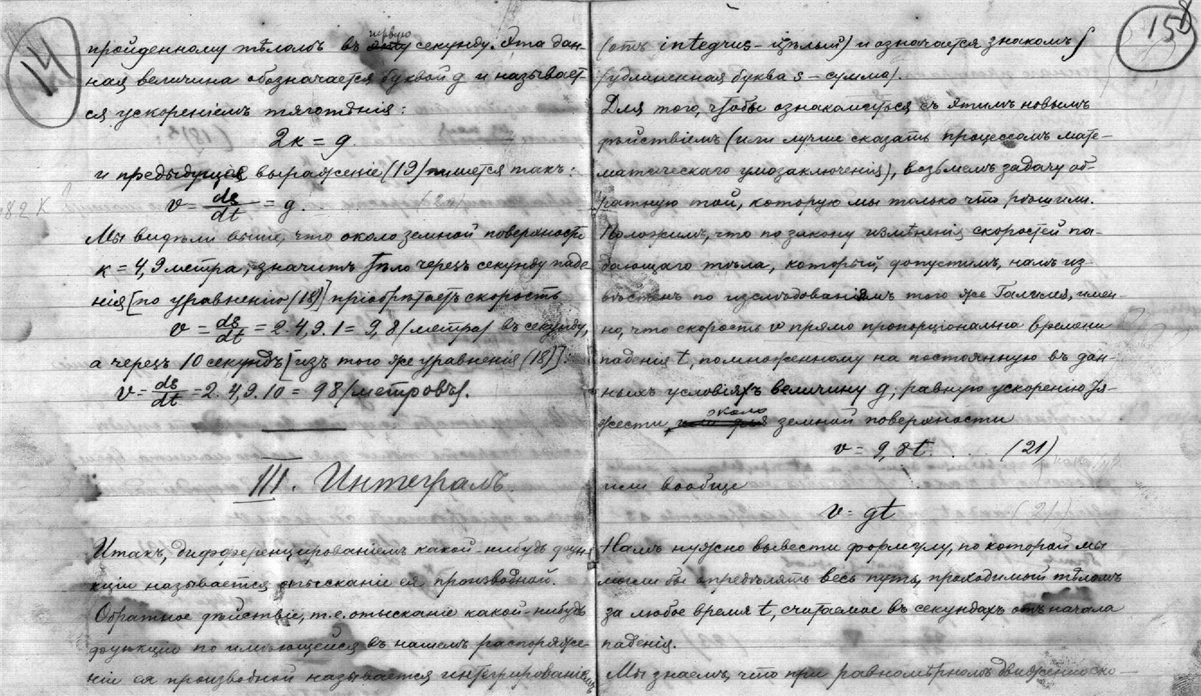 14
пройденному тѣломъ въ первую секунду. Эта дан-
ная величина обозначается буквой g и называет-
ся ускореніемъ тяготѣнія:
2к = g.
и предыдущее выраженіе (19) пишется такъ:
v = ds/dt = g.
Мы видѣли выше, что около земной поверхности
к = 4,9 метра; значитъ тѣло черезъ секунду паде-
нія [по уравненію (18)] пріобрѣтаетъ скорость
v = ds/dt = 2.4,9.1 = 9,8 (метра) въ секунду,
а черезъ 10 секундъ [изъ того же уравненія (18)]:
v = ds/dt = 2.4,9.10 = 98 (метровъ).
III. Интегралъ.
Итакъ, дифференцированіемъ какой-нибудь фун-
кціи называется отысканіе ея производной.
Обратное дѣйствіе, т.е. отысканіе какой-нибудь
функціи по имѣющейся въ нашемъ распоряже-
ніи ея производной называется интегрированіемъ
15
(отъ integrus - цѣлый) и означается знакомъ ∫
(удлиненная буква s - сумма).
Для того, чтобы ознакомиться съ этимъ новымъ
дѣйствіемъ (или лучше сказать процессомъ мате-
матическаго умозаключенія), возьмемъ задачу об-
ратную той, которую мы только что рѣшили.
Положимъ, что по закону измѣненія скоростей па-
дающаго тѣла, который, допустимъ, намъ из-
вѣстенъ по изслѣдованіямъ того же Галилея, имен-
но, что скорость v прямо пропорціональна времени
паденія t, помноженному на постоянную въ дан-
ныхъ условіяхъ величину g, равную ускоренію тя-
жести около земной поверхности
v = 9,8t . . . (21)
или вообще
v = gt
Намъ нужно вывести формулу, по которой мы
могли бы опредѣлять весь путь, проходимый тѣломъ
за любое время t, считаемое въ секундахъ отъ начала
паденія.
Мы знаемъ, что при равномѣрномъ движеніи ско-